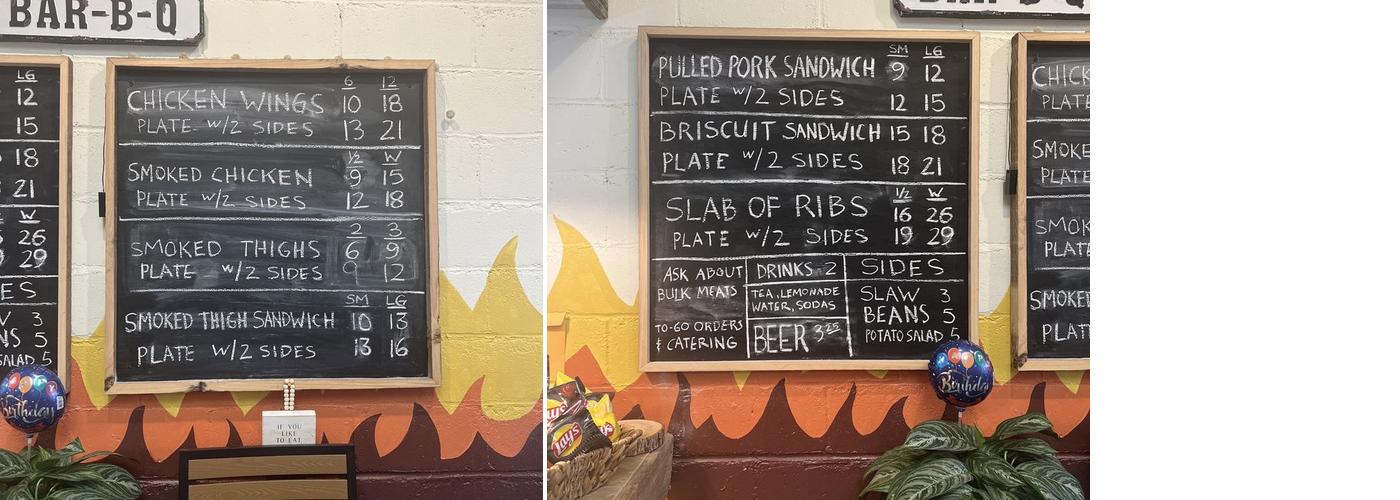 BAR-B-Q
LG
12
15
18
21
W
26
29
ES
3
ANS 5
SALAD 5
Birthday
6 12
CHICKEN WINGS 10 18
PLATE w/2 SIDES 13 21
1/2 W
SMOKED CHICKEN 9 15
PLATE w/2 SIDES 12 18
2 3
SMOKED THIGHS 6 9
PLATE w/2 SIDES 9 12
SM LG
SMOKED THIGH SANDWICH 10 13
PLATE w/2 SIDES 13 16
IF YOU
LIKE
TO EAT
SM LG
PULLED PORK SANDWICH 9 12
PLATE w/2 SIDES 12 15
BRISCUIT SANDWICH 15 18
PLATE w/2 SIDES 18 21
1/2 W
SLAB OF RIBS 16 26
PLATE w/2 SIDES 19 29
ASK ABOUT
BULK MEATS
TO-GO ORDERS
& CATERING
DRINKS 2
TEA, LEMONADE
WATER, SODAS
BEER 3.25
SIDES
SLAW 3
BEANS 5
POTATO SALAD 5
Birthday
Lay's
CHICK
PLATE
SMOKE
PLATE
SMOK
PLATE
SMOKED
PLAT